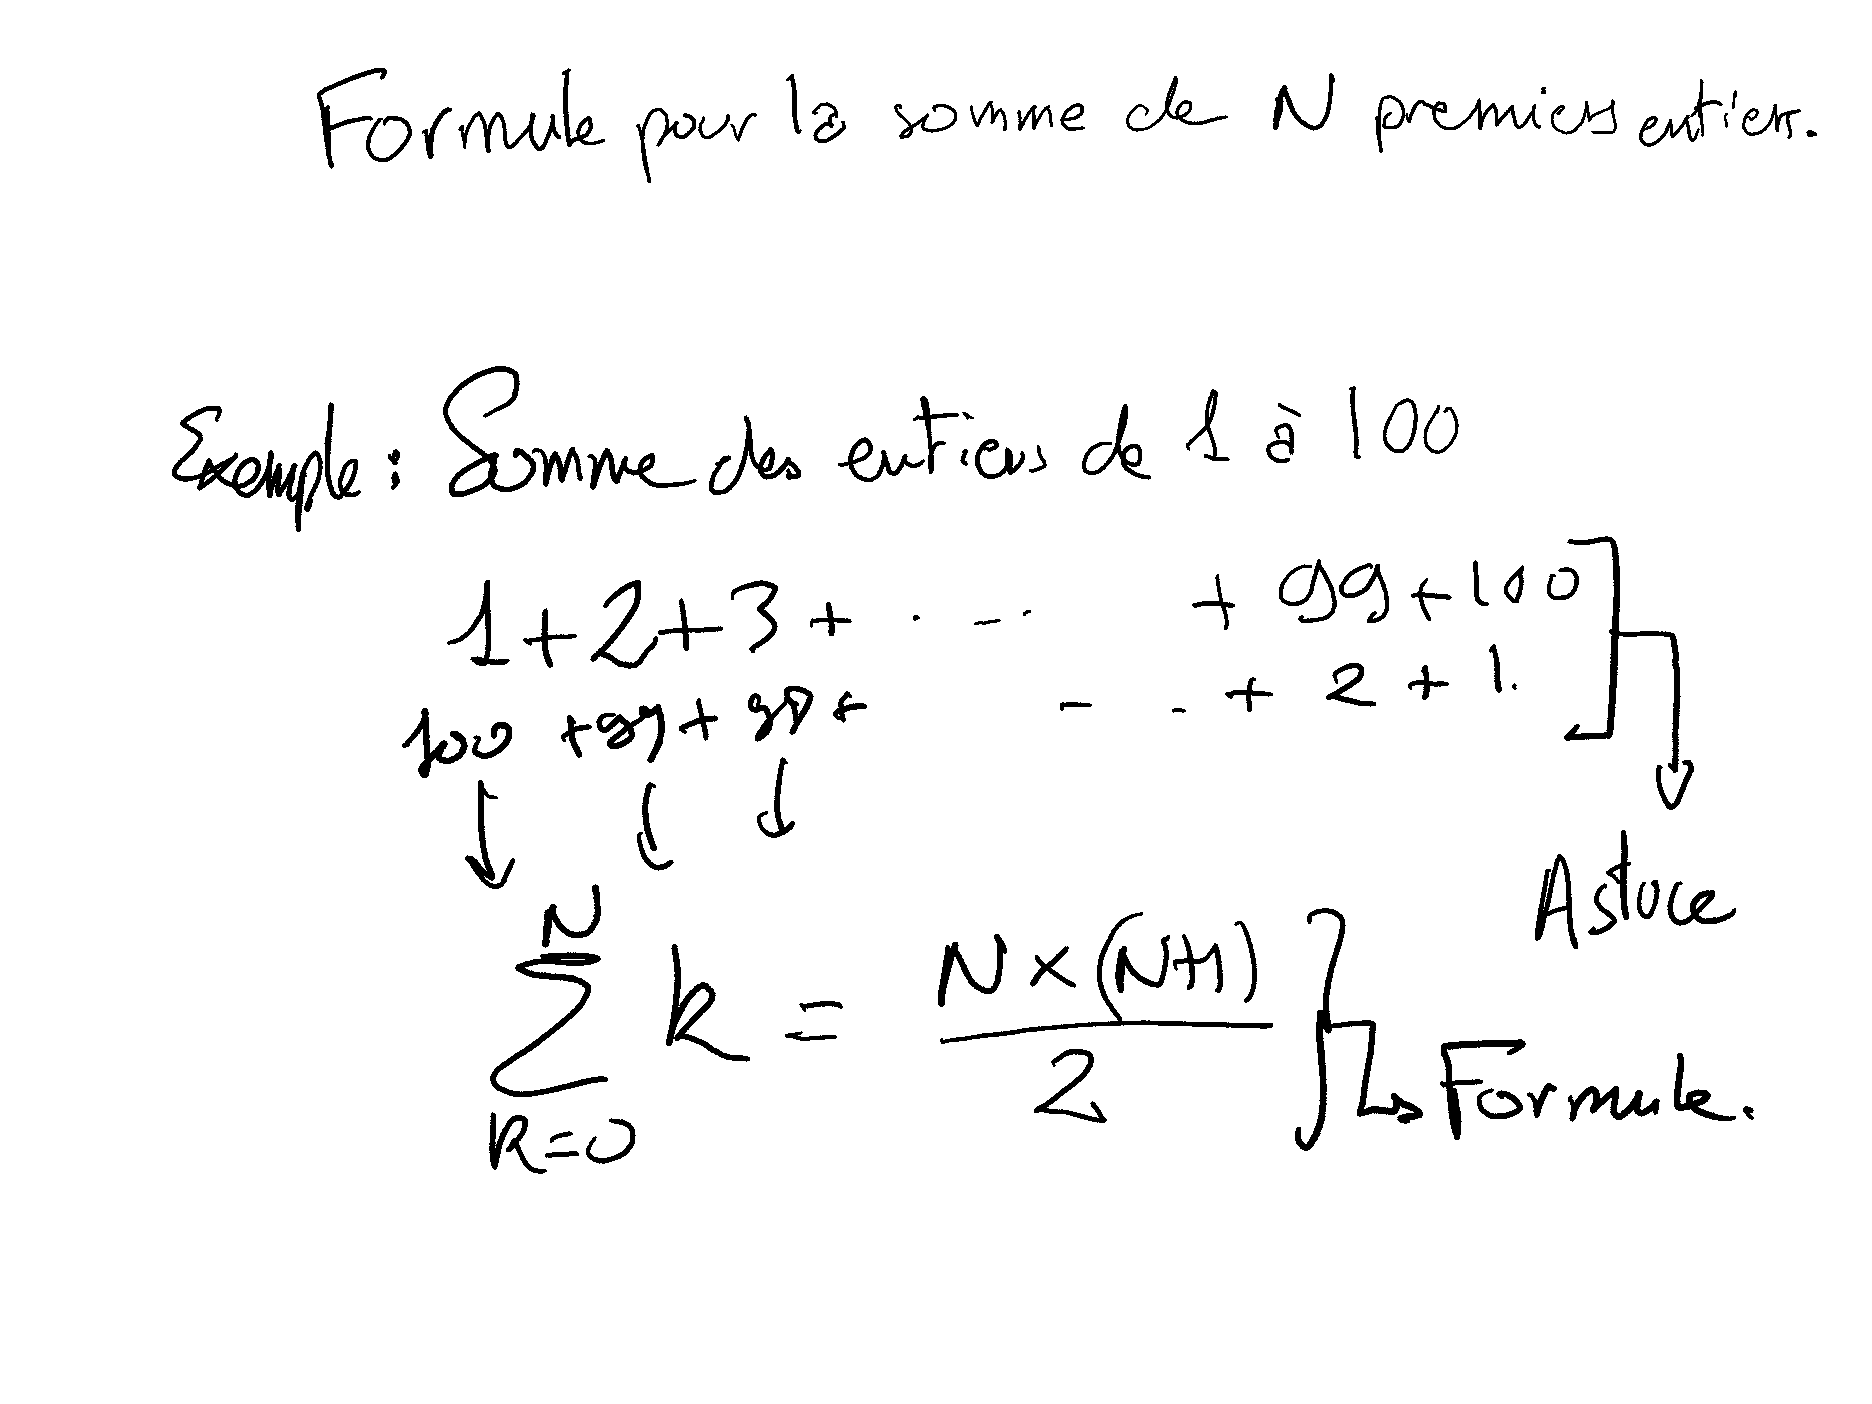 Formule pour la somme de N premiers entiers.
Exemple : Somme des entiers de 1 à 100
1 + 2 + 3 + . - - + 99 + 100
100 + 99 + 98 + - - . + 2 + 1.
↓ ↓ ↓
Astuce
\sum_{k=0}^{N} k = \frac{N \times (N+1)}{2} } → Formule.